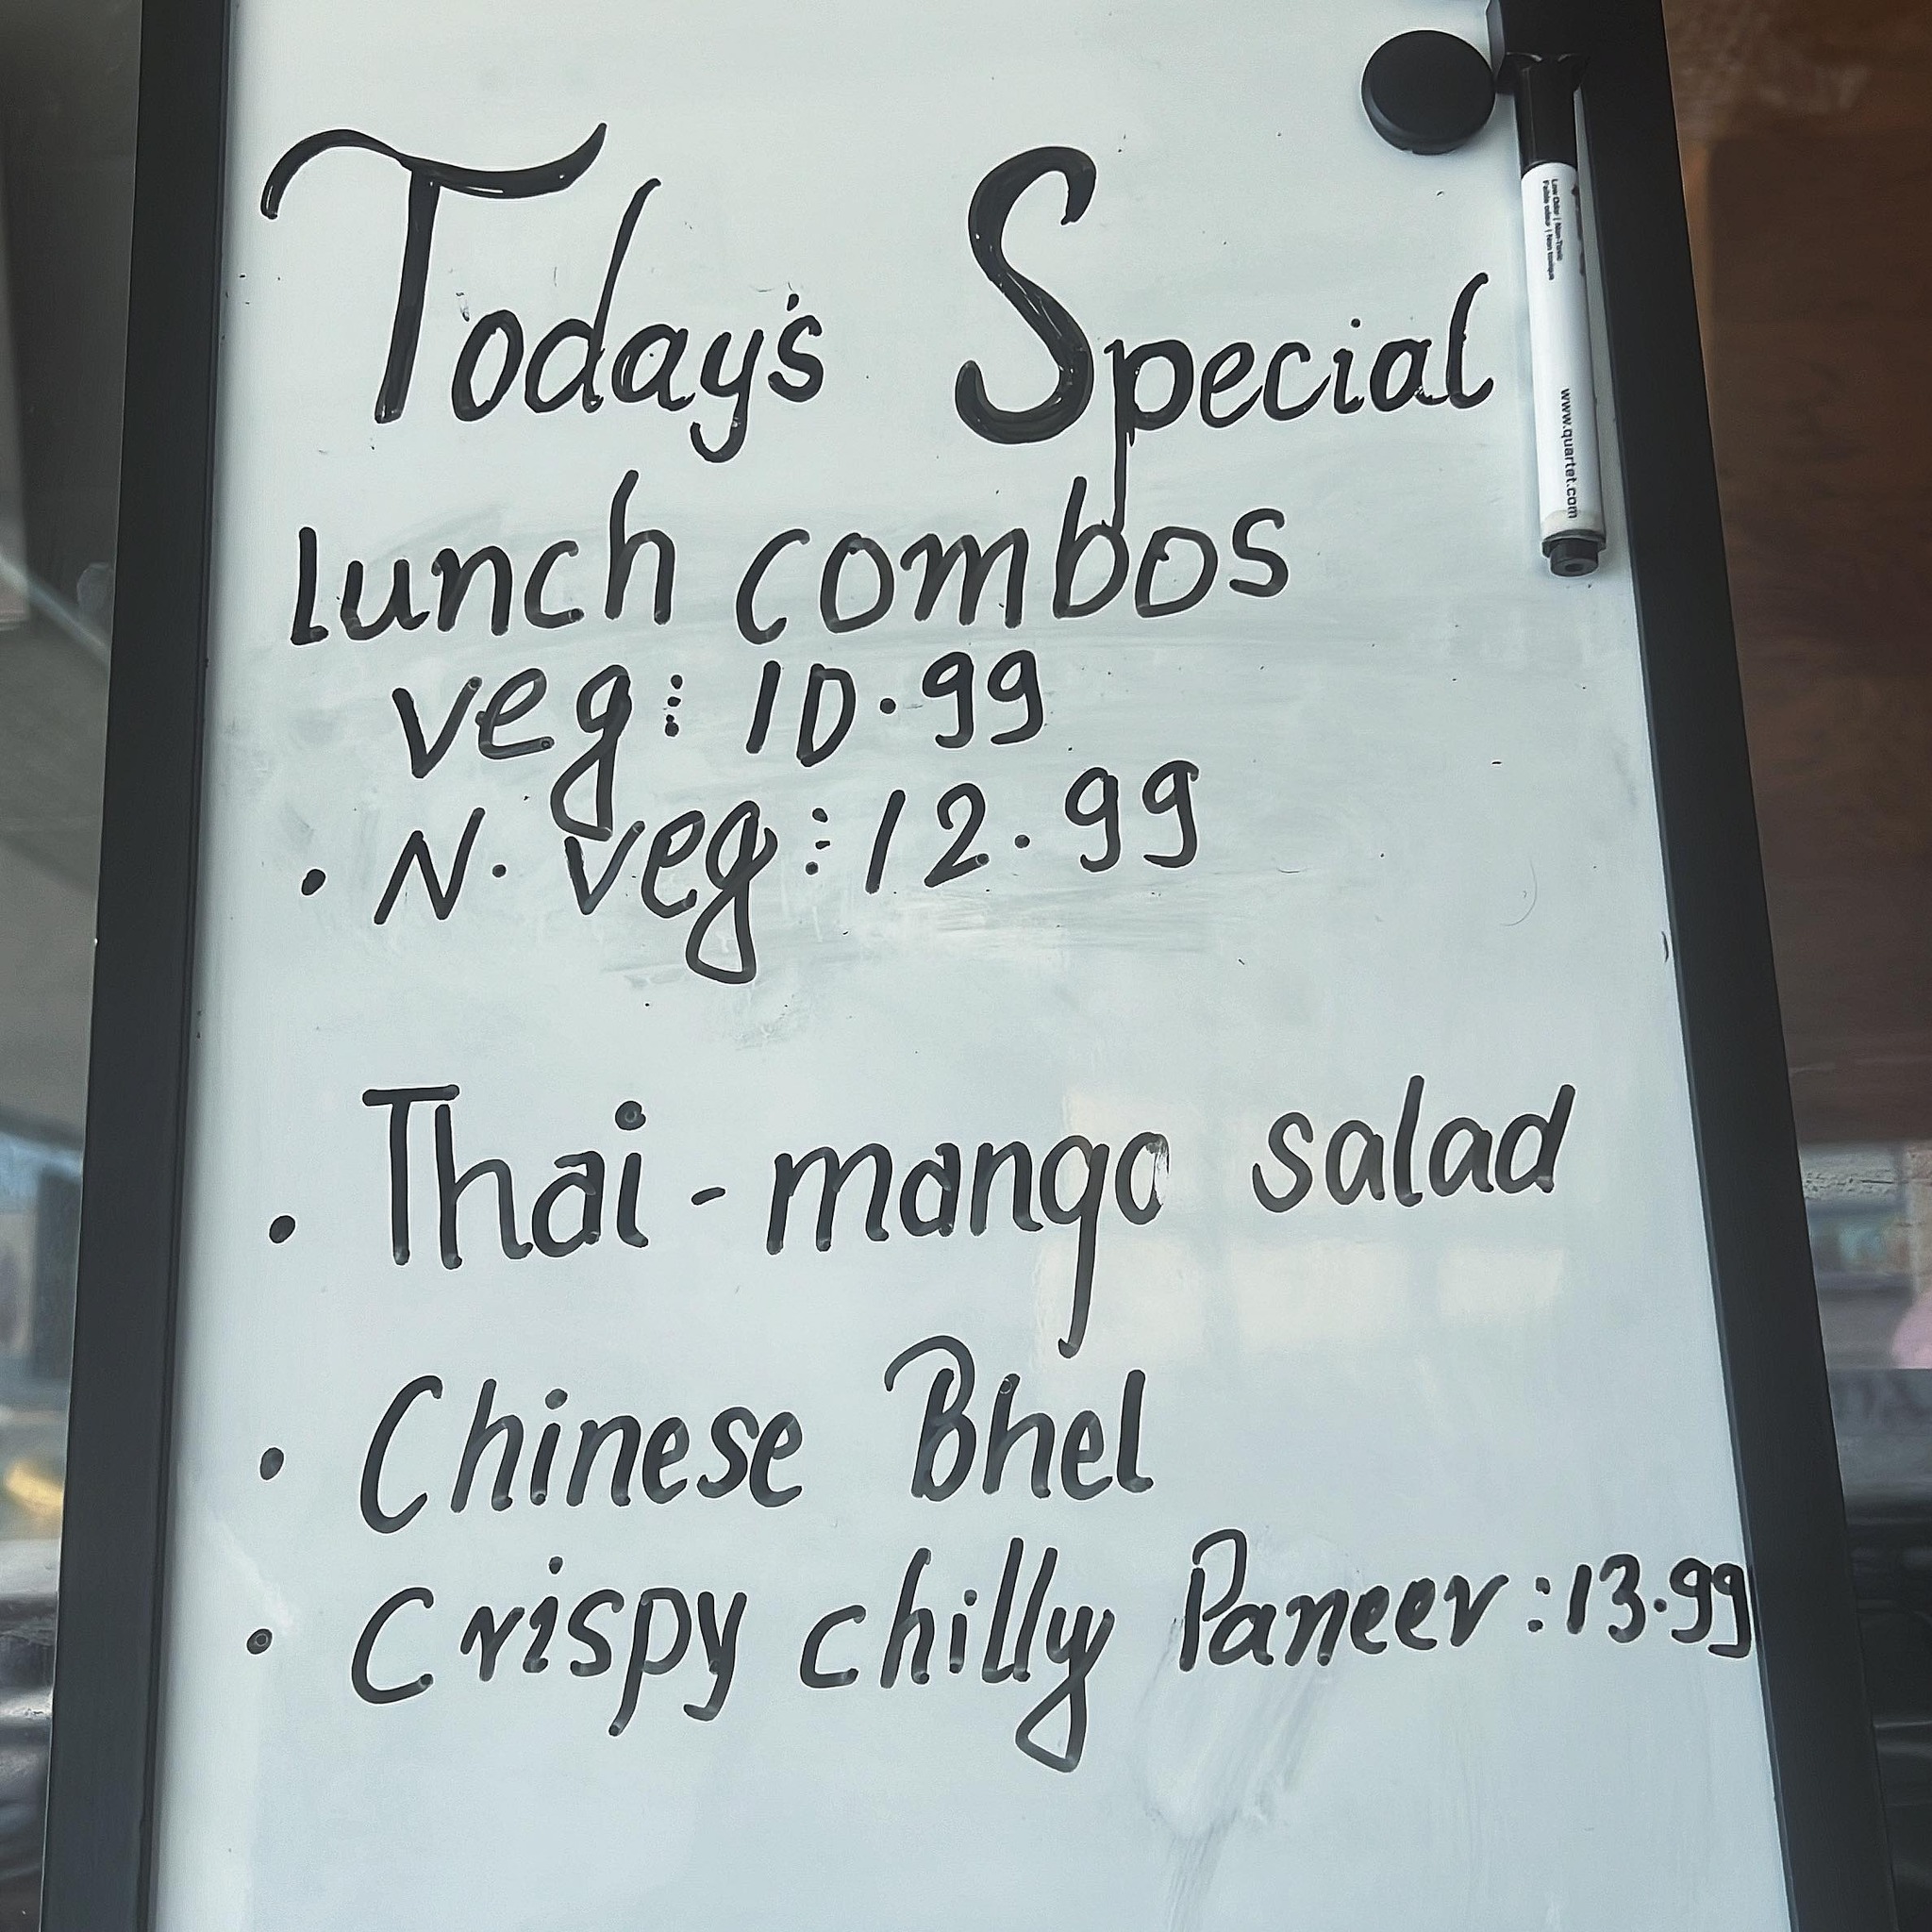 Today's Special
lunch combos
veg: 10.99
• N. veg: 12.99
• Thai - mango salad
• Chinese Bhel
• Crispy chilly Paneer : 13.99
Low Odor | Non-Toxic
Faible odeur | Non toxique
www.quartet.com